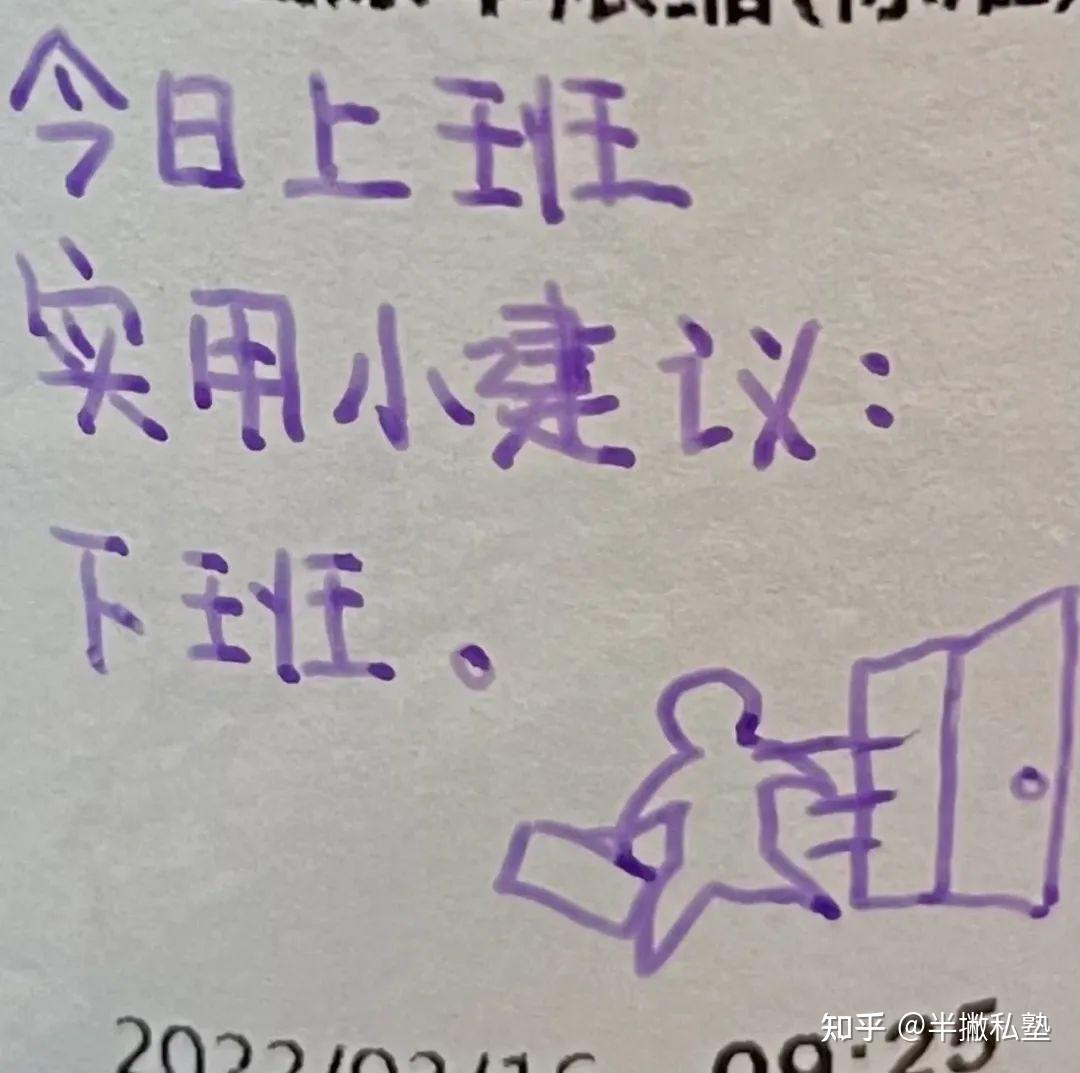 今日上班
实用小建议：
下班。
09:25
知乎 @半撇私塾